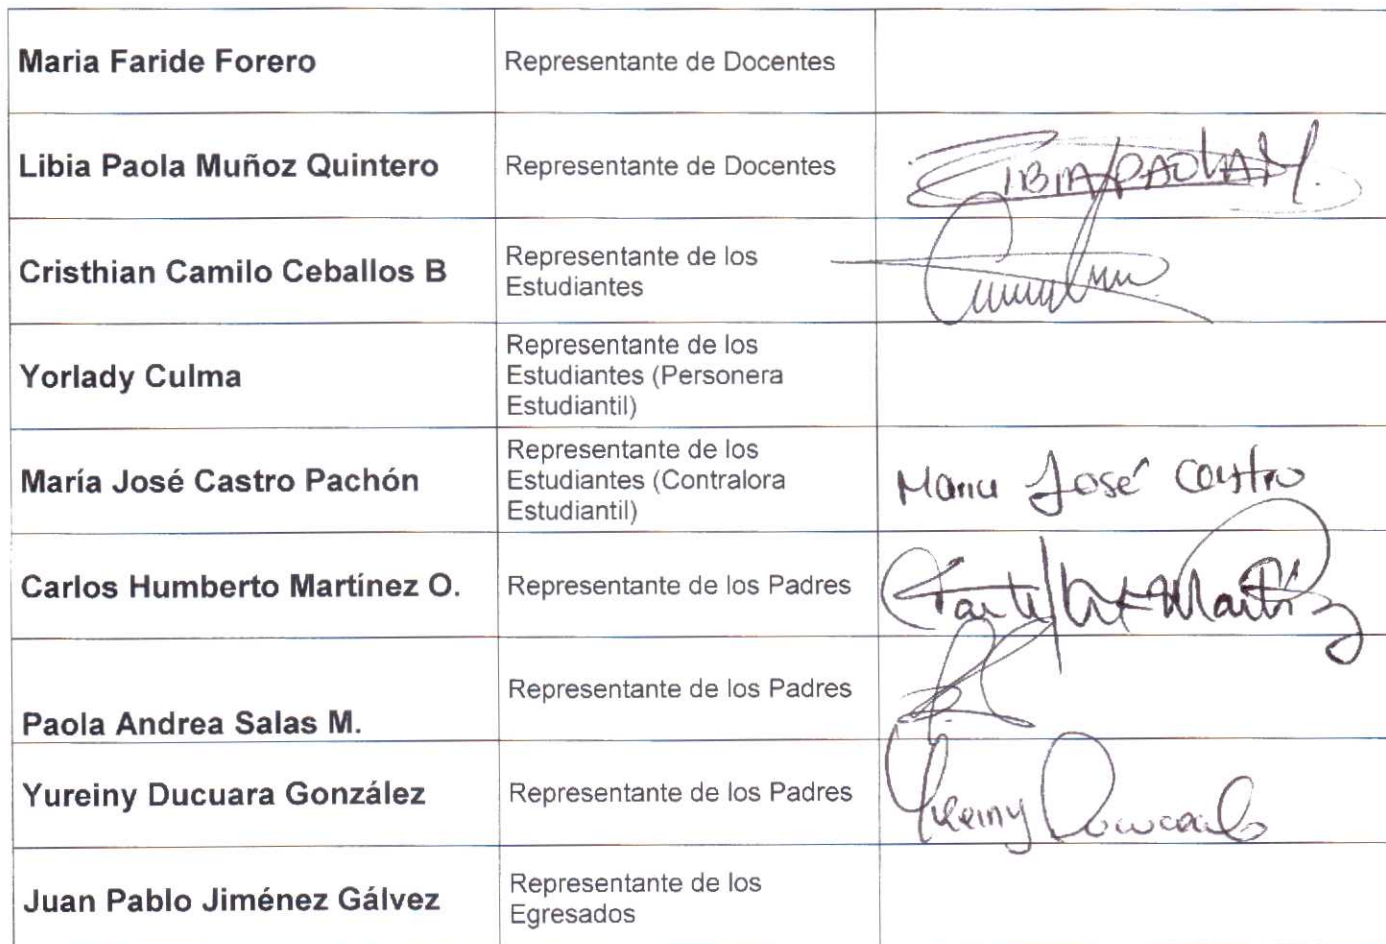 Maria Faride Forero
Representante de Docentes
Libia Paola Muñoz Quintero
Representante de Docentes
LIBIA PAOLA M.
Cristhian Camilo Ceballos B
Representante de los
Estudiantes
Yorlady Culma
Representante de los
Estudiantes (Personera
Estudiantil)
María José Castro Pachón
Representante de los
Estudiantes (Contralora
Estudiantil)
Maria José Castro
Carlos Humberto Martínez O.
Representante de los Padres
Paola Andrea Salas M.
Representante de los Padres
Yureiny Ducuara González
Representante de los Padres
Yureiny Ducuara
Juan Pablo Jiménez Gálvez
Representante de los
Egresados